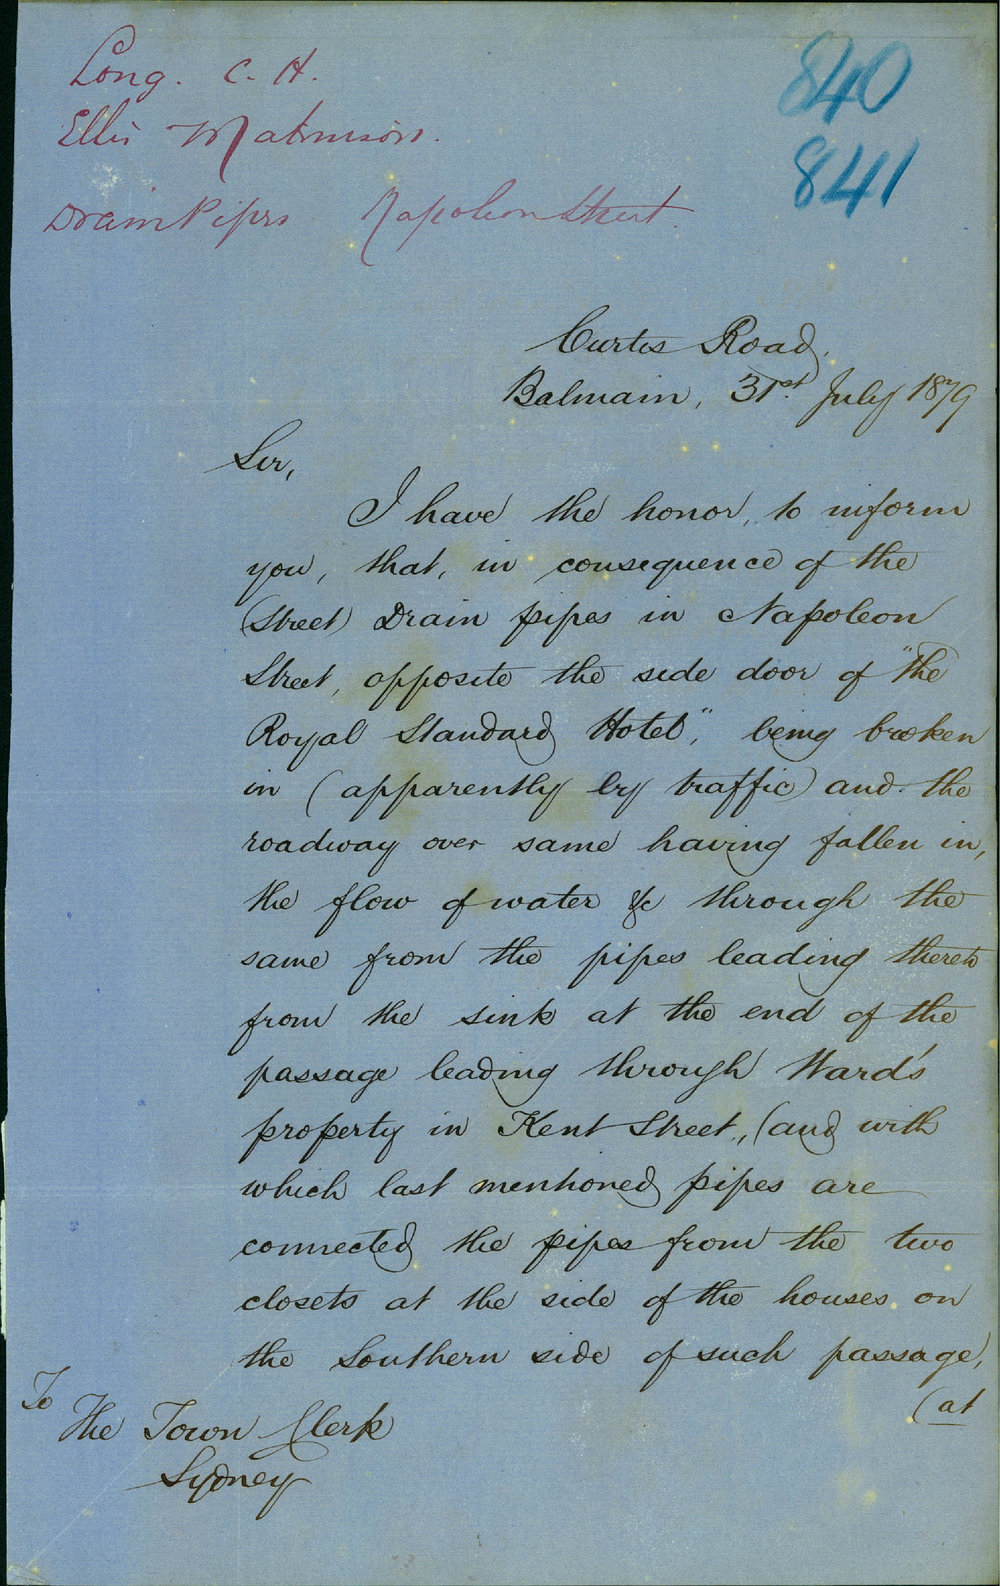 Long. C. H.
840
Ellis
841
Drain Pipes Napoleon Street.
Curtis Road,
Balmain, 31st July 1879
Sir,
I have the honor, to inform
you, that, in consequence of the
(Street) Drain pipes in Napoleon
Street, opposite the side door of "The
Royal Standard Hotel", being broken
in (apparently by traffic) and the
roadway over same having fallen in,
the flow of water &c through the
same from the pipes leading thereto
from the sink at the end of the
passage leading through Ward's
property in Kent Street, (and with
which last mentioned pipes are
connected the pipes from the two
closets at the side of the houses on
the Southern side of such passage,
(at
To
The Town Clerk
Sydney